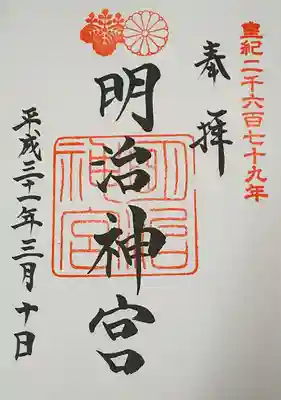 皇紀二千六百七十九年
奉拝
明治神宮
明治神宮
平成三十一年三月十日